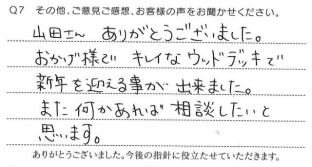 Q7 その他、ご意見ご感想、お客様の声をお聞かせください。
山田さん ありがとうございました。
おかげ様で キレイなウッドデッキで
新年を迎える事が 出来ました。
また何かあれば 相談したいと
思います。
ありがとうございました。今後の指針に役立たせていただきます。